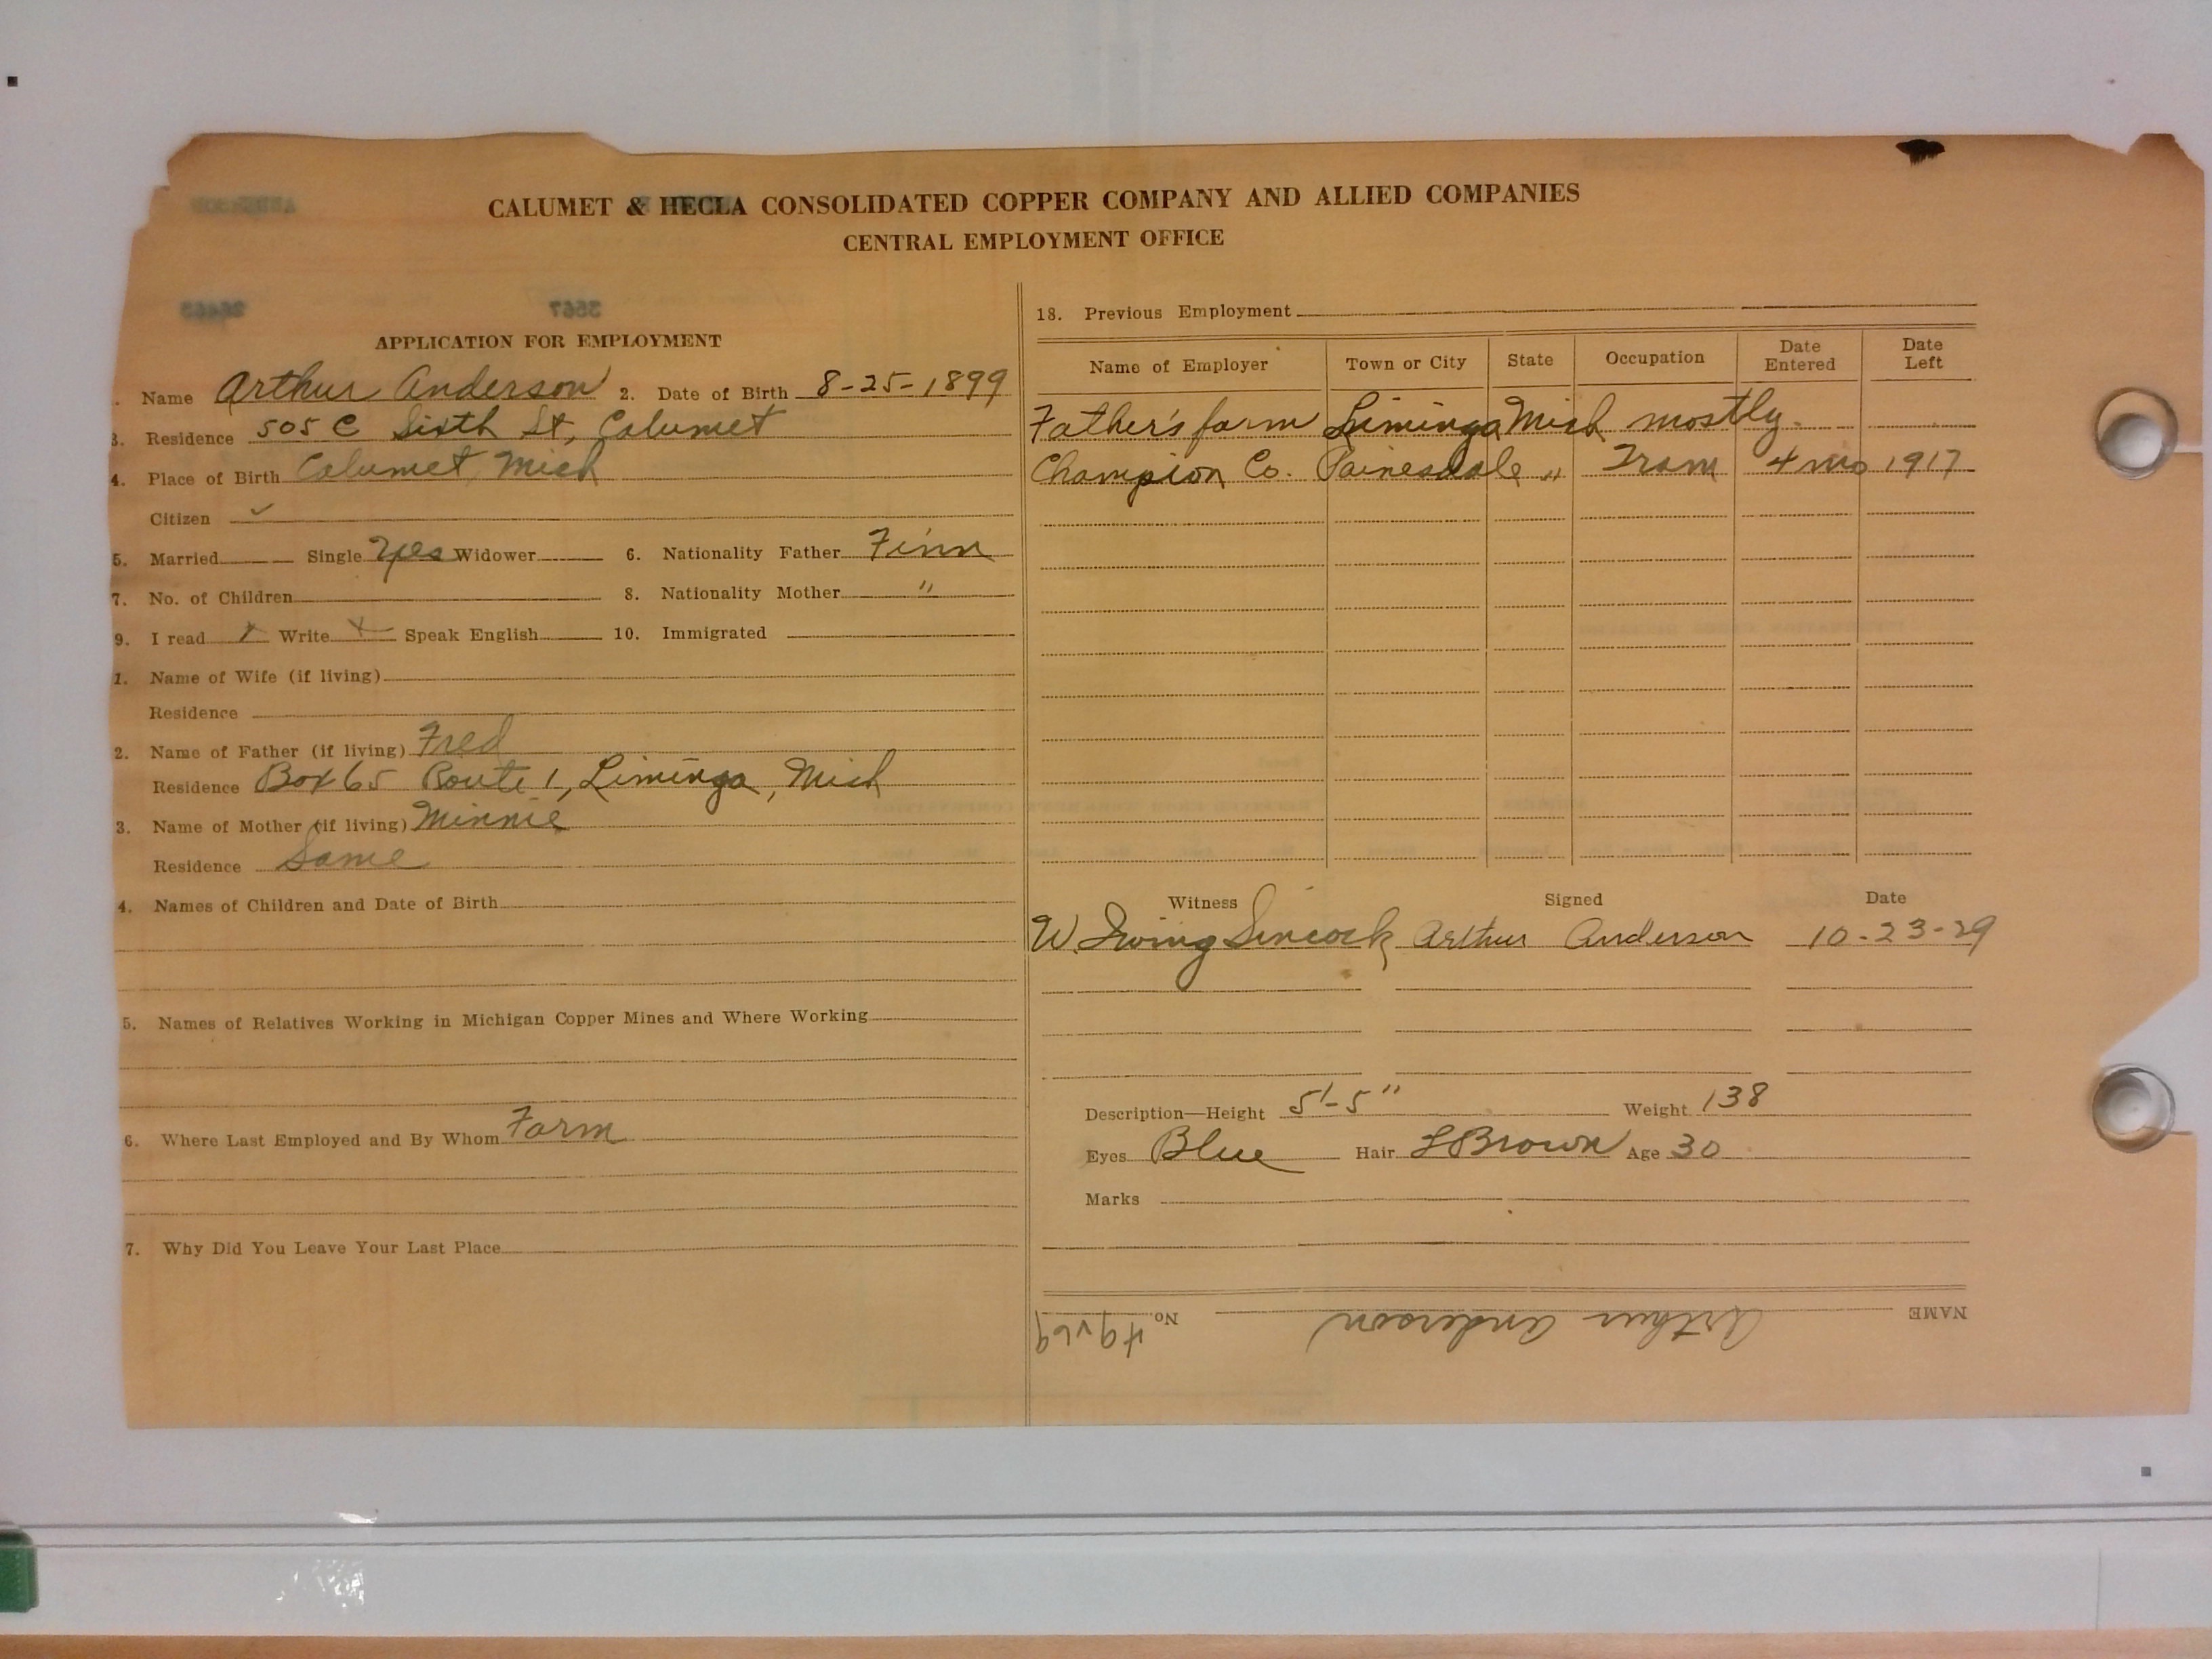 CALUMET & HECLA CONSOLIDATED COPPER COMPANY AND ALLIED COMPANIES
CENTRAL EMPLOYMENT OFFICE
APPLICATION FOR EMPLOYMENT
. Name Arthur Anderson 2. Date of Birth 8-25-1899
3. Residence 505 C Sixth St, Calumet
4. Place of Birth Calumet, Mich
Citizen ✓
5. Married Single Yes Widower 6. Nationality Father Finn
7. No. of Children 8. Nationality Mother "
9. I read x Write x Speak English 10. Immigrated
1. Name of Wife (if living)
Residence
2. Name of Father (if living) Fred
Residence Box 65 Route 1, Liminga, Mich
3. Name of Mother (if living) Minnie
Residence Same
4. Names of Children and Date of Birth
5. Names of Relatives Working in Michigan Copper Mines and Where Working
6. Where Last Employed and By Whom Farm
7. Why Did You Leave Your Last Place
18. Previous Employment
Name of Employer Town or City State Occupation Date Entered Date Left
Father's farm Liminga Mich mostly.
Champion Co. Painesdale " Tram 4 mo 1917
Witness Signed Date
W. Irving Sincock Arthur Anderson 10-23-29
Description—Height 5'-5" Weight 138
Eyes Blue Hair L Brown Age 30
Marks
NAME Arthur Anderson No.